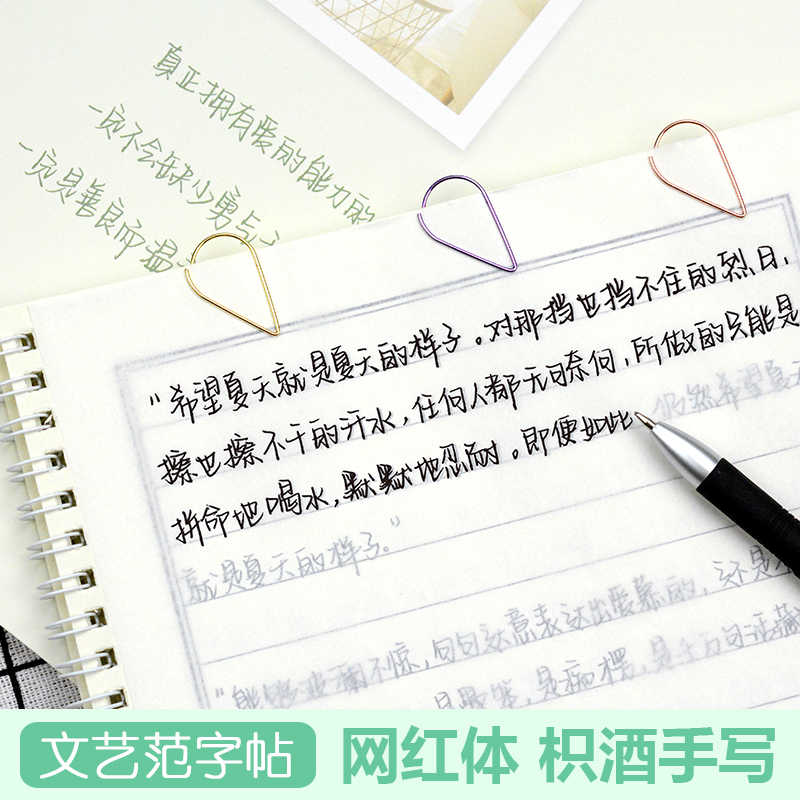 真正拥有爱的能力的
一定不会缺少勇与
一定是善良而温
“希望夏天就是夏天的样子。对那挡也挡不住的烈日，
擦也擦不干的汗水，任何人都无可奈何，所做的只能是
拼命地喝水，默默地忍耐。即便如此，仍然希望夏天
就是夏天的样子。”
“能够波澜不惊，句句达意表达出爱慕的，还是
是病樱，是千万句话藏
文艺范字帖 网红体 枳酒手写